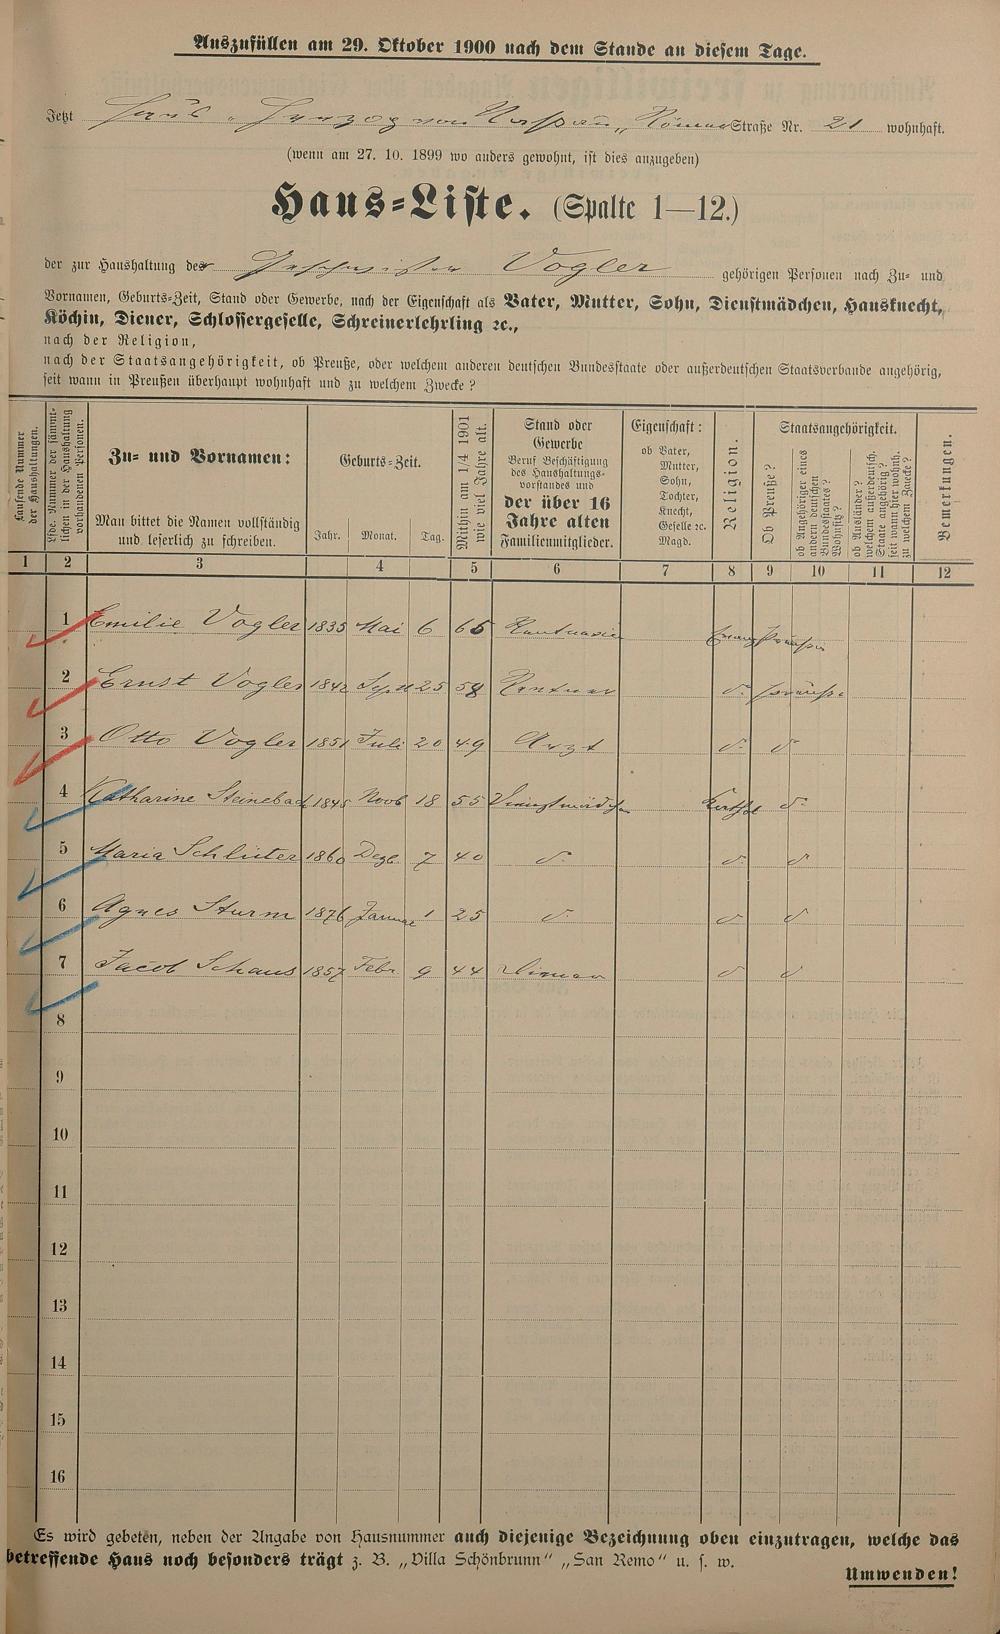 Auszufüllen am 29. Oktober 1900 nach dem Stande an diesem Tage.
Jetzt Haus „Herzog von Nassau" Römer Straße Nr. 21 wohnhaft.
(wenn am 27. 10. 1899 wo anders gewohnt, ist dies anzugeben)
Haus-Liste. (Spalte 1—12.)
der zur Haushaltung der Geschwister Vogler gehörigen Personen nach Zu- und
Vornamen, Geburts-Zeit, Stand oder Gewerbe, nach der Eigenschaft als Vater, Mutter, Sohn, Dienstmädchen, Hausknecht,
Köchin, Diener, Schlossergeselle, Schreinerlehrling ꝛc.,
nach der Religion,
nach der Staatsangehörigkeit, ob Preuße, oder welchem anderen deutschen Bundesstaate oder außerdeutschen Staatsverbande angehörig,
seit wann in Preußen überhaupt wohnhaft und zu welchem Zwecke?
Laufende Nummer der Haushaltungen.
Lfde. Nummer der sämmtlichen in der Haushaltung vorhandenen Personen.
Zu- und Vornamen:
Man bittet die Namen vollständig
und leserlich zu schreiben.
Geburts-Zeit.
Jahr. Monat. Tag.
Mithin am 1/4 1901 wie viel Jahre alt.
Stand oder
Gewerbe
Beruf Beschäftigung
des Haushaltungs-
vorstandes und
der über 16
Jahre alten
Familienmitglieder.
Eigenschaft:
ob Vater,
Mutter,
Sohn,
Tochter,
Knecht,
Geselle ꝛc.
Magd.
Religion.
Staatsangehörigkeit.
Ob Preuße?
ob Angehöriger eines andern deutschen Bundesstaates? Wohnsitz?
ob Ausländer? welchem außerdeutsch. Staate angehörig? seit wann hier wohnh. zu welchem Zwecke?
Bemerkungen.
1 2 3 4 5 6 7 8 9 10 11 12
1 Emilie Vogler 1835 Mai 6 65 Rentnerin Evang. Preußin
2 Ernst Vogler 1842 Sept 25 58 Rentner d. Preuße
3 Otto Vogler 1851 Juli 20 49 Arzt d. d.
4 Katharine Steinebach 1845 Novb 18 55 Dienstmädchen Kathol d.
5 Maria Schlüter 1860 Dezb. 7 40 d. d. d
6 Agnes Sturm 1876 Januar 1 25 d. d d
7 Jacob Schaus 1857 Febr. 9 44 Diener d d
8
9
10
11
12
13
14
15
16
Es wird gebeten, neben der Angabe von Hausnummer auch diejenige Bezeichnung oben einzutragen, welche das
betreffende Haus noch besonders trägt z. B. „Villa Schönbrunn" „San Remo" u. s. w.
Umwenden!